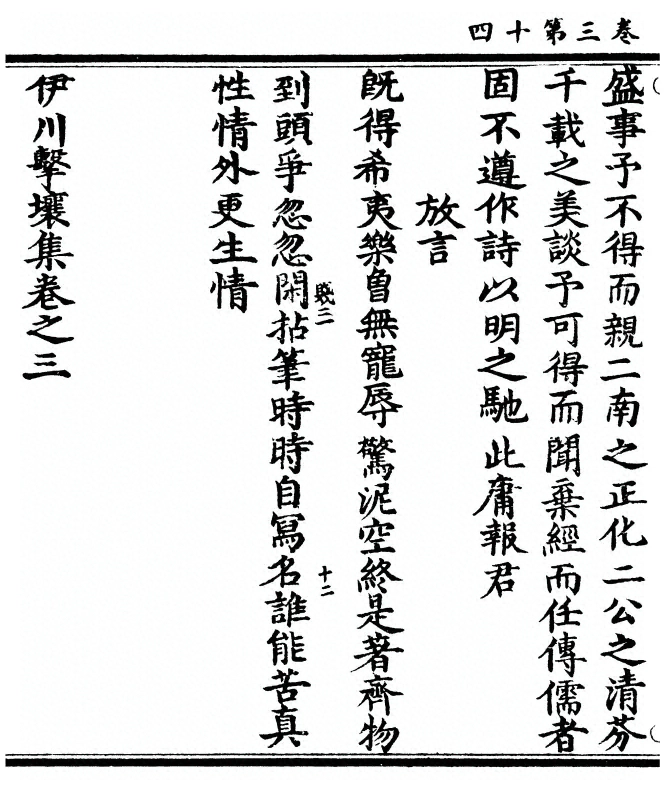 卷三第十四
盛事予不得而親二南之正化二公之清芬
千載之美談予可得而聞棄經而任傳儒者
固不遵作詩以明之馳此庸報君
放言
既得希夷樂曾無寵辱驚泥空終是著齊物
到頭爭忽忽閑拈筆時時自寫名誰能苦真
賤三
十二
性情外更生情
伊川擊壤集卷之三